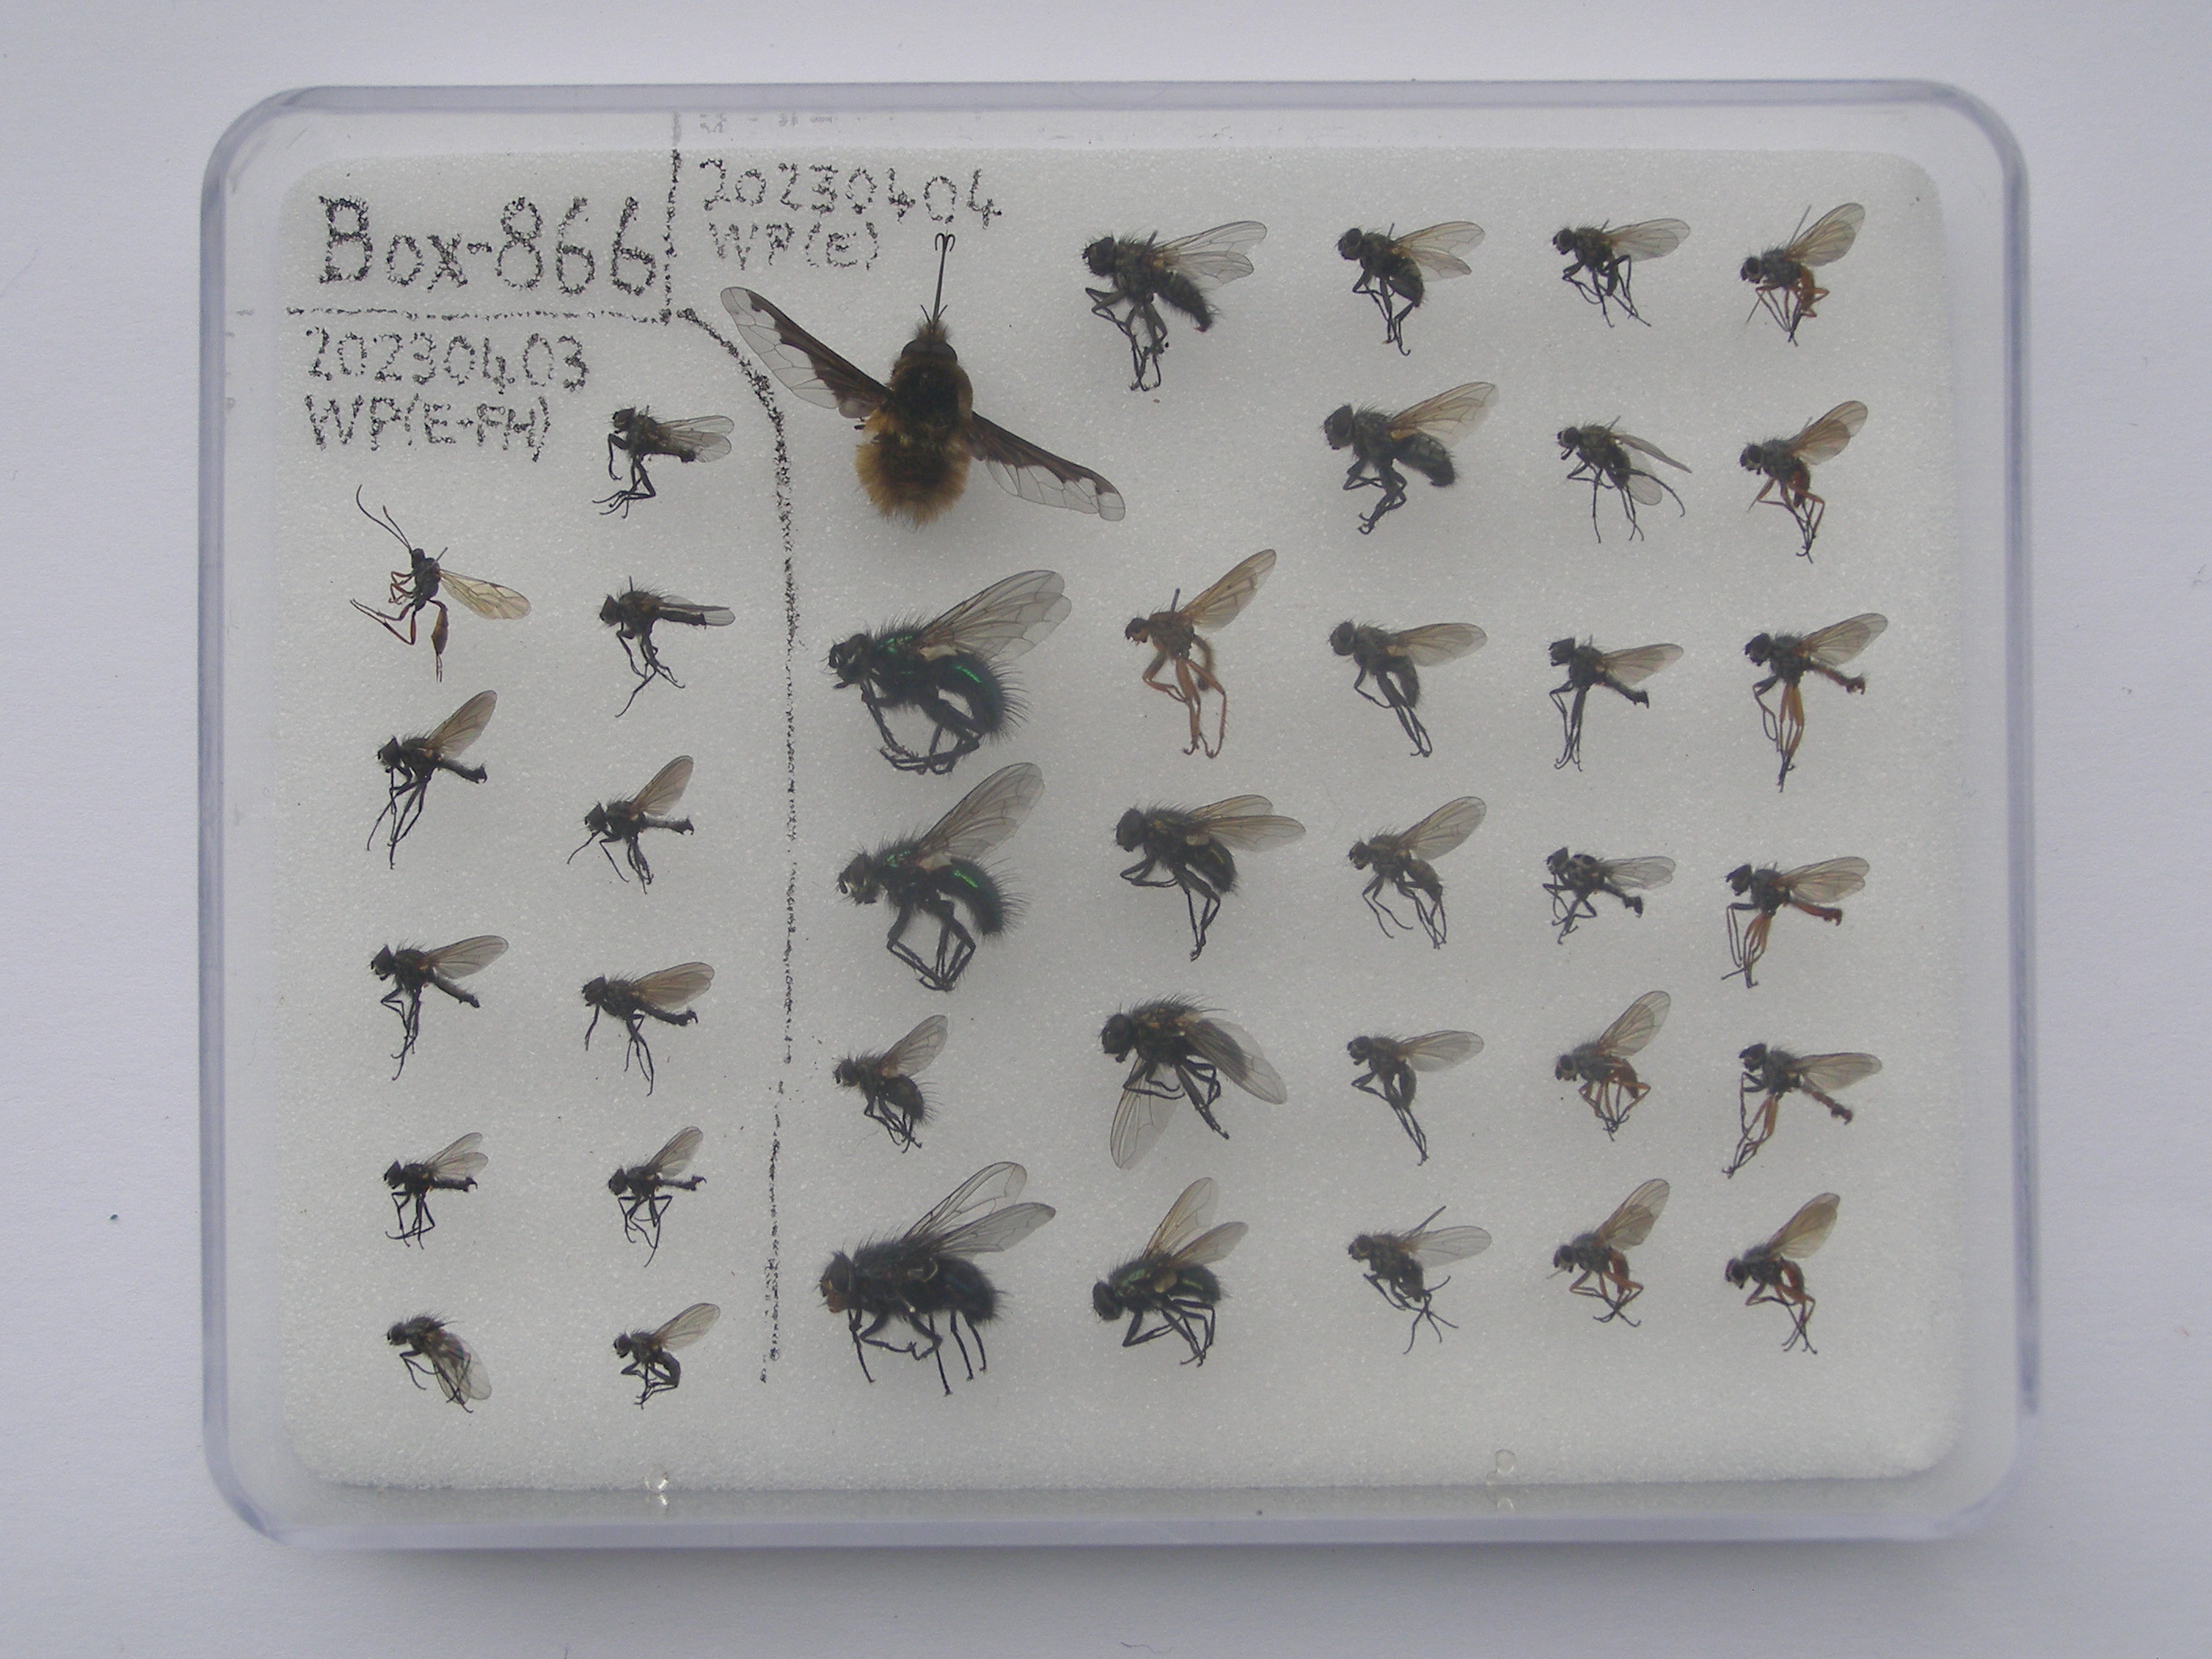 Box-866
20230404
WP(E)
20230403
WP(E-FH)